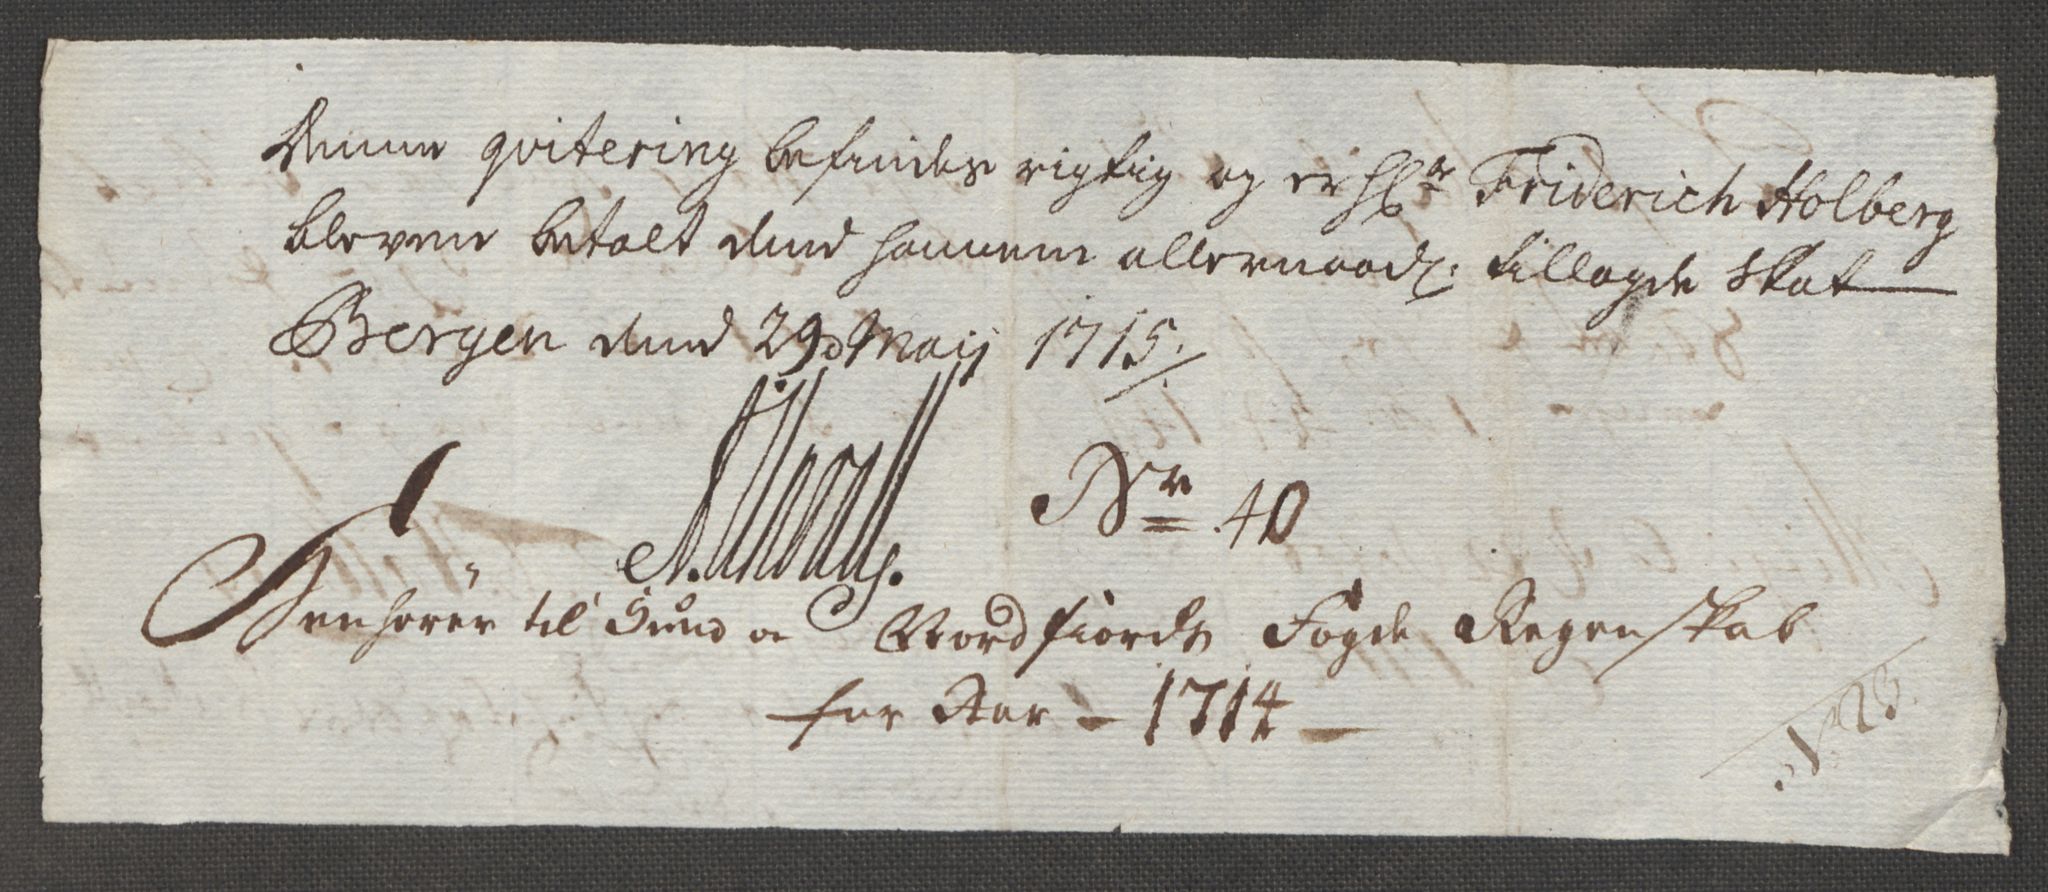 Denne qvitering befindes rigtig og er Hr Friderich Holberg
bleven betalt dend hannem allernaadl: tillagde Skat
Bergen dend 29d Maij 1715.
Nr 40
Henhører til Sund oc Nordfiords Fogde Regenskab
for Aar - 1714 -